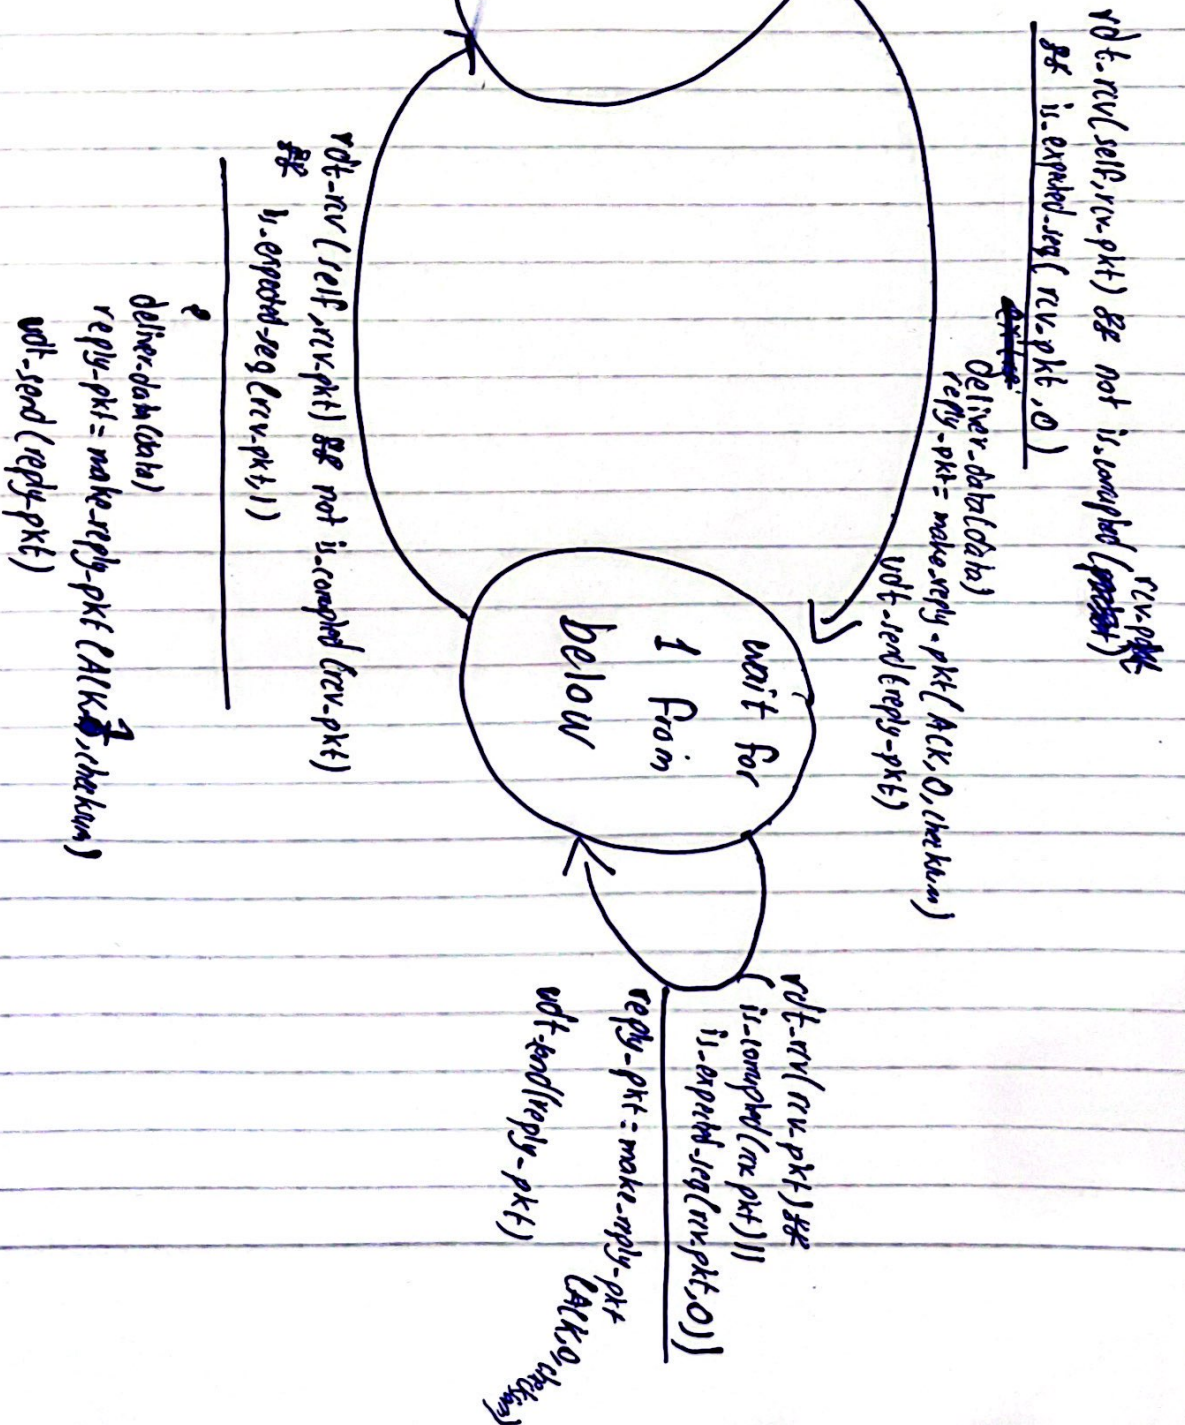 rdt-rcv(self,rcv-pkt) && not is-corrupted(rcv-pkt)
&& is-expected-seq(rcv-pkt,0)
deliver-data(data)
reply-pkt = make-reply-pkt(ACK,0,checksum)
udt-send(reply-pkt)
wait for
1 from
below
rdt-rcv(rcv-pkt) &&
( is-corrupted(rcv pkt) ||
is-expected-seq(rcv-pkt,0))
reply-pkt = make-reply-pkt
(ACK,0,checksum)
udt-send(reply-pkt)
rdt-rcv(self,rcv-pkt) && not is-corrupted(rcv-pkt)
&& is-expected-seq(rcv-pkt,1)
deliver-data(data)
reply-pkt = make-reply-pkt(ACK,1,checksum)
udt-send(reply-pkt)